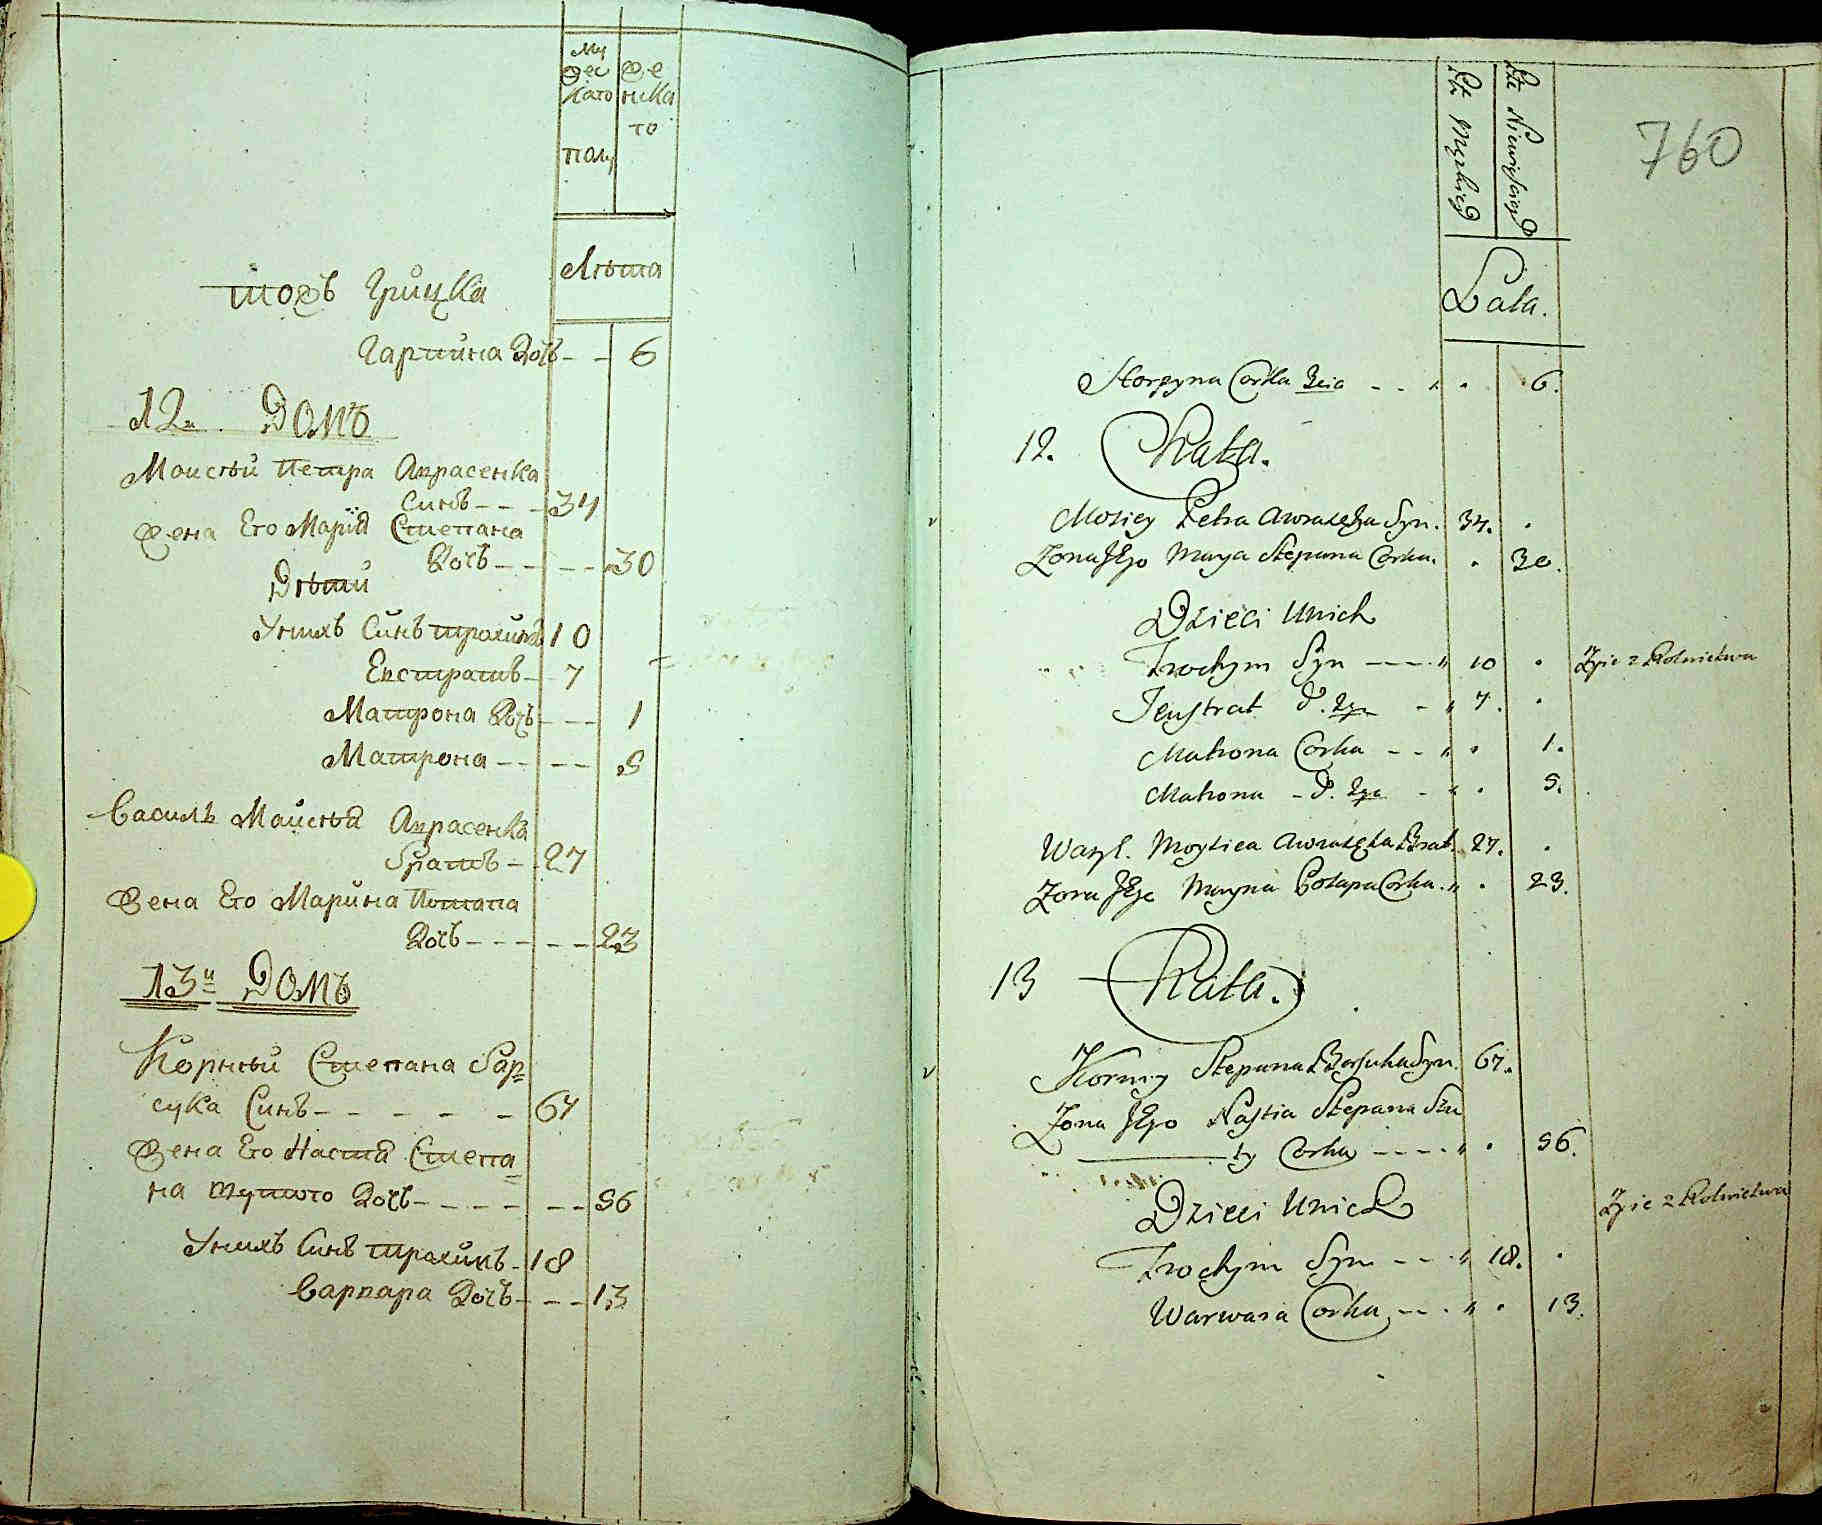 Му
жес
каго
полу
Же
нска
го
Лѣта
тогъ Грицка
Гарпина Дочь - - 6
12й Домъ
Моисѣй Петра Аврасенка
Синъ - - - 34
Жена Его Марія Степана
Дочь - - - - 30
Дѣти
Унихъ Синъ Трохимъ 10
Евстратъ - 7
Матрона Дочь - - - 1
Матрона - - - - - 5
Василь Моисѣя Аврасенка
Братъ - 27
Жена Его Марина Потапа
Дочь - - - - - 23
13й Домъ
Корнѣй Степана Бар=
сука Синъ - - - - - 67
Жена Его Настя Степа=
на Шутого Дочь - - - - - - 56
Унихъ Синъ Трохимъ - 18
Варвара Дочь - - - 13
Płci Męzkiey
Płci Niewieściey
760
Lata.
Horpyna Corka Zeia - - 6.
12. Chata.
Mosiey Petra Awrasęka Syn. 34.
Zona Jego Marya Stepana Corka. 30.
Dzieci Unich
Trochym Syn - - - 10 Zyie z Rolnictwa
Jeustrat d. 7.
Matrona Corka - - 1.
Matrona - d. - 5.
Wasyl. Moysieia Awrasęka Brat. 27.
Zona Jego Maryna Potapa Corka. 23.
13 Chata.
Korniy Stepana Borsuka Syn. 67.
Zona Jego Nastia Stepana Szu
ty Corka - - - - 56.
Dzieci Unich
Zyie z Rolnictwa
Trochym Syn - - - 18.
Warwara Corka - - 13.